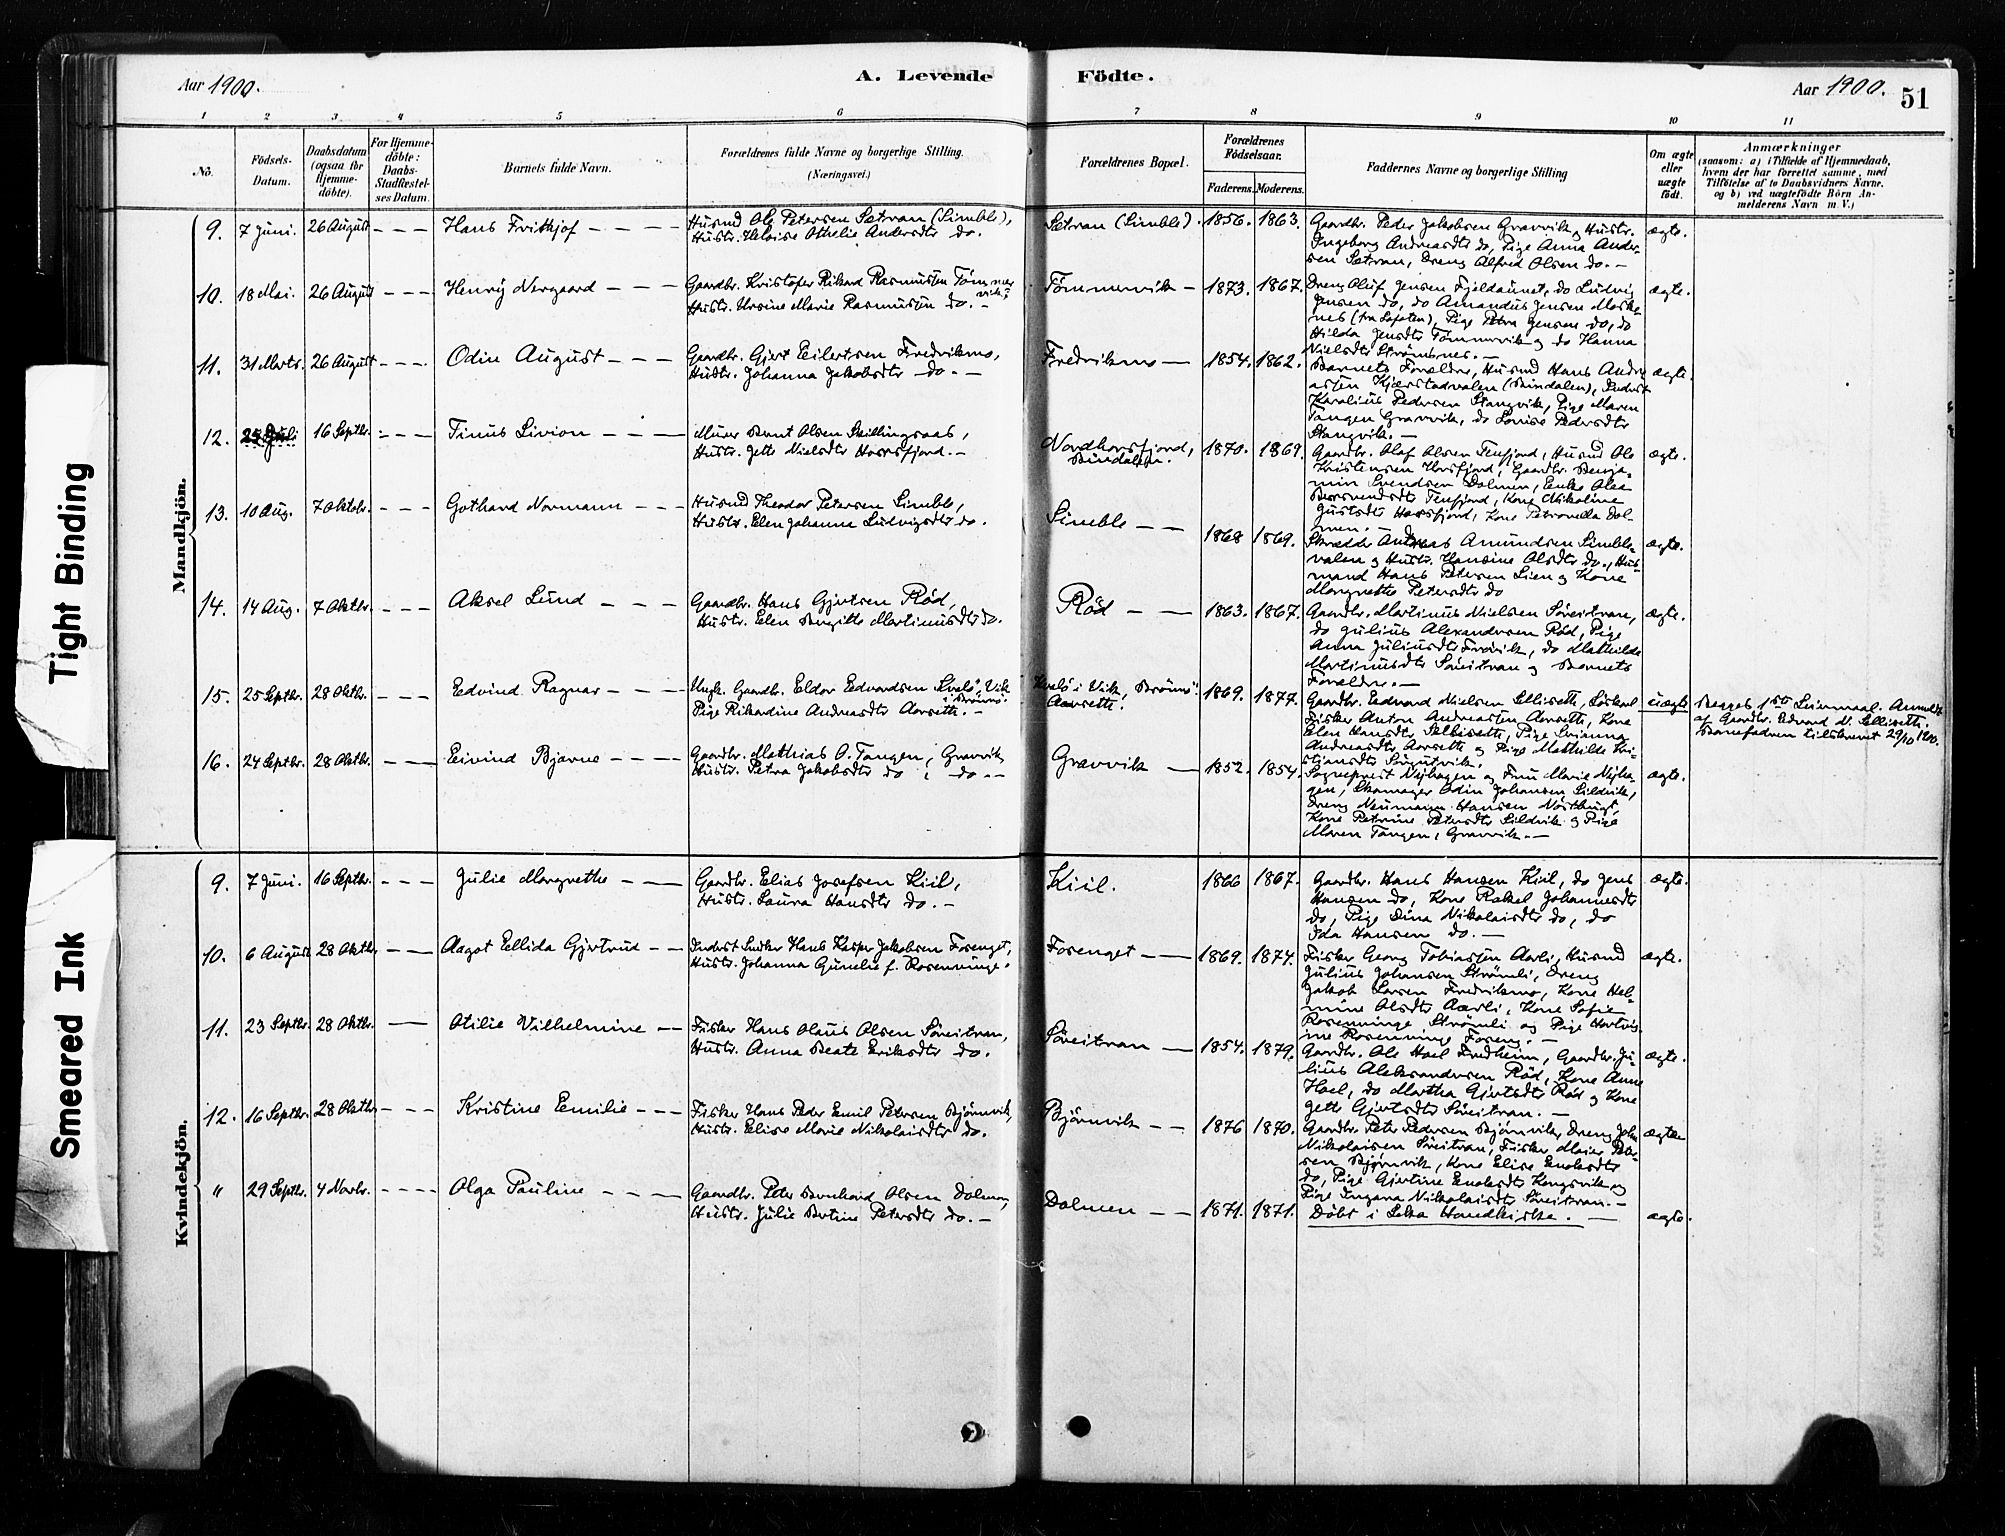 Aar 1900.
A. Levende
Födte.
Aar 1900.
51
1 2 3 4 5 6 7 8 9 10 11
No.
Födsels-
Datum.
Daabsdatum
(ogsaa for
Hjemme-
döbte).
For Hjemme-
döbte:
Daabs-
Stadfæstel-
ses Datum.
Barnets fulde Navn.
Forældrenes fulde Navne og borgerlige Stilling.
(Næringsvei.)
Forældrenes Bopæl.
Forældrenes
Födselsaar.
Faderens. Moderens.
Faddernes Navne og borgerlige Stilling
Om ægte
eller
uægte
født.
Anmærkninger
(saasom: a) i Tilfælde af Hjemmedaab,
hvem der har forrettet samme, med
Tilföielse af to Daabsvidners Navne,
og b) ved uægtefödte Börn An-
melderens Navn m. V.)
Tight Binding
Smeared Ink
Mandkjön.
9. 7 Juni. 26 August - - - Hans Frithjof - - - -
Husmd Ole Petersen Setran (Simble),
Hustr. Heloise Othelie Andersdtr do.
Setran (Simble). 1856. 1863.
Gaardbr. Peder Jakobsen Gravvik og Hustr.
Ingeborg Andreasdtr do, Pige Anna Ander-
sen Setran, Dreng Alfred Olsen do. -
ægte.
10. 18 Mai. 26 August - - - Henry Norgaard - - -
Gaardbr. Kristofer Rikard Rasmussen Tömmer
vik,
Hustr. Ursine Marie Rasmussen do. -
Tömmervik - 1873. 1867.
Dreng Oluf Jensen Fjeldaunet, do Ludvig
Jensen do, do Amandus Jensen Moske-
nes (fra Lofoten), Pige Petra Jensen do, do
Hilda Jensdtr Tömmervik og do Hanna
Nielsdtr Strömsnes. -
ægte.
11. 31 Marts. 26 August - - - Odin August - - -
Gaardbr. Gjert Eilertsen Fredriksmo,
Hustr. Johanna Jakobsdtr do. -
Fredriksmo - 1854. 1862.
Barnets Forældre, Husmd Hans Andre
assen Kjærstadvalen (Bindalen), Inderst
Karolius Pedersen Stangvik, Pige Maren
Tangen Gravvik, do Lovise Pedersdtr
Stangvik. -
ægte.
12. 25 Juli 16 Septbr. - - - Tinus Sivion - - -
Murer Bernt Olsen Skillingsaas,
Hustr. Jette Nielsdtr Horsfjord. -
Nordhorsfjord,
Bindalen. 1870. 1869.
Gaardbr. Olaf Olsen Terfjord, Husmd Ole
Kristensen Horsfjord, Gaardbr. Benja-
min Svendsen Dolmen, Enke Olea
Terfjord, Kone Nikoline
Horsfjord, Kone Petronella Dol-
men. -
ægte.
13. 10 Aug. 7 Oktbr. - - - Gothard Normann - - -
Husmd Theodor Petersen Simble,
Hustr. Elen Johanna Ludvigsdtr do.
Simble - - 1868 1869.
Skrædder Andreas Amundsen Simble-
valen og Hustr. Hansine Olsdtr do, Hus-
mand Hans Petersen Lien og Kone
Margrethe Petersdtr do
ægte.
14. 14 Aug. 7 Oktbr. - - - Aksel Lund - - -
Gaardbr. Hans Gjertsen Röd,
Hustr. Elen Bergitte Martinusdtr do.
Röd - - 1863. 1867.
Gaardbr. Martinus Nielsen Söreitran,
do Julius Alexandersen Röd, Pige
Anna Juliusdtr Frövik, do Mathilde
Martinusdtr Söreitran og Barnets
Forældre. -
ægte.
15. 25 Septbr. 28 Oktbr. - - - Edvind Ragnar - - -
Ungk. Gaardb. Eldor Edvardsen Kvelö i Vik
i Brönnö.
Pige Rikardine Andreasdtr Aarsette. -
Kvelö i Vik, Brönnö.
Aarsette. 1869. 1877.
Gaardbr. Edvard Nielsen Sellisette,
Fisker Anton Andreassen Aarsette, Kone
Elen Hansdtr Sellisette, Pige
Andreasdtr Aarsette og Pige Mathilde Kri-
stiansdtr
uægte
Begges 1ste Leiermaal. Anmeldt
af Gaardbr. Edvard N. Sellisette.
Barnefadren tilskrevet 29/10 1900.
16. 24 Septbr. 28 Oktbr. - - - Eivind Bjarne - - -
Gaardbr. Mathias O. Tangen, Gravvik,
Hustr. Petra Jakobsdtr do, do. -
Gravvik - 1852. 1854.
Sognepræst Nejhagen og Fru Marie Nejha-
gen, Skomager Odin Johansen Sildvik,
Dreng Neumann Hansen
Kone Petrine Petersdtr Sildvik og Pige
Maren Tangen, Gravvik. -
ægte.
Kvindekjön.
9. 7 Juni. 16 Septbr. - - - Julie Margrethe - - -
Gaardbr. Elias Josefsen Kiil,
Hustr. Laura Hansdtr do. -
Kiil. 1866 1867.
Gaardbr. Hans Hansen Kiil, do Jens
Hansen do, Kone Rakel Johannesdtr
do, Pige Dina Nikolaisdtr do, do
Ida Hansen do. -
ægte.
10. 6 August 28 Oktbr. - - Aagot Ellida Gjertrud - -
Inderst Snedker Hans Kasper Jakobsen Forenget,
Hustr. Johanna Gunelie f. Rosenvinge.
Forenget - - 1869. 1874.
Fisker Georg Tobiassen Aarli, Husmd
Julius Johansen Strömli, Dreng
Jakob Larsen Fredriksmo, Kone Hel-
mine Olsdtr Aarli, Kone Sofie
Rosenvinge Strömli og Pige Hartvig-
ine Rosenvinge Foreng. -
ægte.
11. 23 Septbr. 28 Oktbr. - Otilie Vilhelmine - -
Fisker Hans Olaus Olsen Söreitran,
Hustr. Anna Beate Eriksdtr do.
Söreitran - 1854. 1879.
Gaardbr. Ole Hoel Fredheim, Gaardbr. Ju-
lius Aleksandersen Röd, Kone Anne
Hoel, do Martha Gjertsdtr Röd og Kone
Jette Gjertsdtr Söreitran. -
ægte.
12. 16 Septbr. 28 Oktbr. - - - Kristine Emilie - - -
Fisker Hans Peder Emil Petersen Bjørnvik,
Hustr. Elise Marie Nikolaisdtr do.
Björnvik - - 1876 1870.
Gaardbr. Peter Pedersen Bjørnvik, Dreng John
Nikolaisen Söreitran, Fisker Meier Peter-
sen Bjørnvik, Kone Elise Enoksdtr
do, Pige Gjertine Enoksdtr Kongsvik og
Pige Ingara Nikolaisdtr Söreitran. -
ægte
" 29 Septbr. 4 Novbr. - - - - Olga Pauline - - -
Gaardbr. Peter Bernhard Olsen Dolmen,
Hustr. Julie Bertine Petersdtr do. -
Dolmen - - 1871. 1871.
Döbt i Leka Hovedkirke. -
ægte.